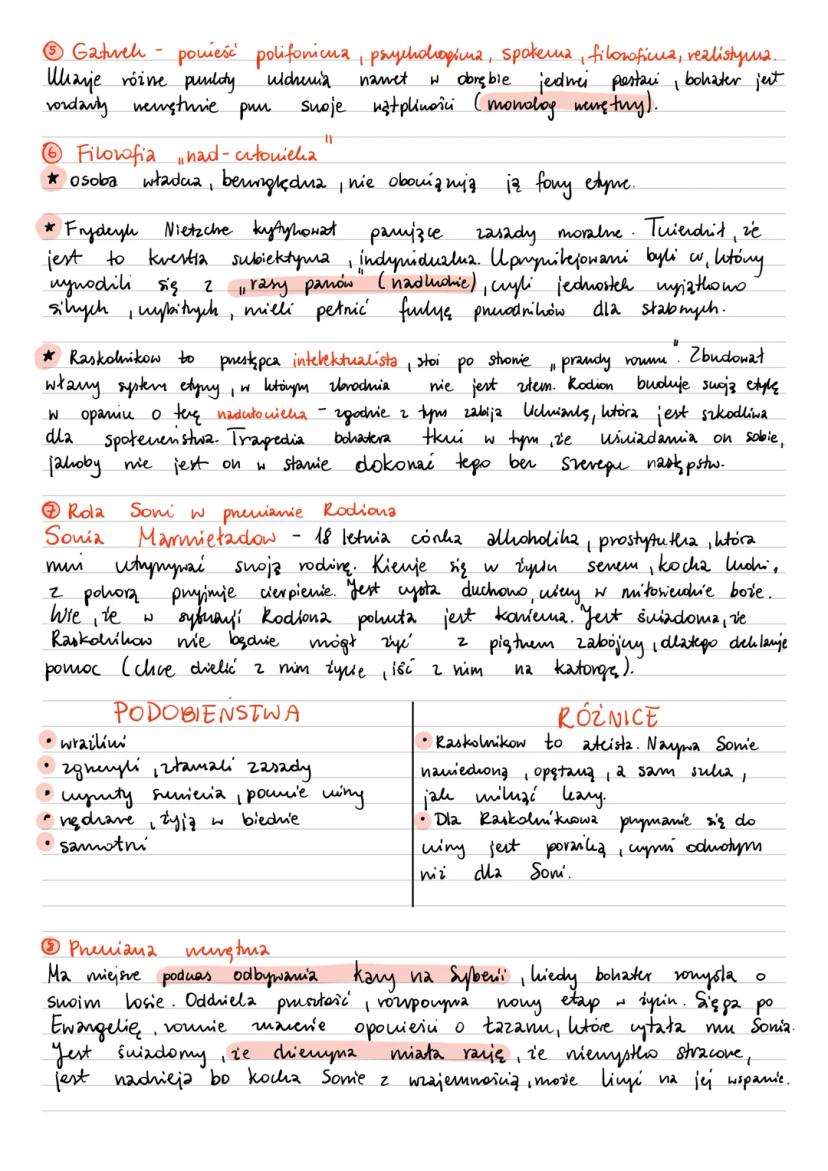 ⑤ Gatunek - powieść polifoniczna, psychologiczna, społeczna, filozoficzna, realistyczna.
Ukazuje różne punkty widzenia nawet w obrębie jednej postaci, bohater jest
rozdarty wewnętrznie przez swoje wątpliwości (monolog wewnętrzny).
⑥ Filozofia „nad-człowieka"
★ osoba władcza, bezwzględna, nie obowiązują ją normy etyczne.
★ Fryderyk Nietzche krytykował panujące zasady moralne. Twierdził, że
jest to kwestia subiektywna, indywidualna. Uprzywilejowani byli ci, którzy
wywodzili się z „rasy panów" (nadludzie), czyli jednostek wyjątkowo
silnych, wybitnych, mieli pełnić funkcję przewodników dla słabszych.
★ Raskolnikow to przestępca intelektualista, stoi po stronie „prawdy rozumu". Zbudował
własny system etyczny, w którym zbrodnia nie jest złem. Rodion buduje swoją etykę
w oparciu o tezę nadczłowieka - zgodnie z tym zabija lichwiarkę, która jest szkodliwa
dla społeczeństwa. Tragedia bohatera tkwi w tym, że uświadamia on sobie,
jakoby nie jest on w stanie dokonać tego bez szeregu następstw.
⑦ Rola Soni w przemianie Rodiona
Sonia Marmieładow - 18 letnia córka alkoholika, prostytutka, która
musi utrzymywać swoją rodzinę. Kieruje się w życiu sercem, kocha ludzi,
z pokorą przyjmuje cierpienie. Jest czysta duchowo, wierzy w miłosierdzie boże.
Wie, że w sytuacji Rodiona pokuta jest konieczna. Jest świadoma, że
Raskolnikow nie będzie mógł żyć z piętnem zabójcy, dlatego deklaruje
pomoc (chce dzielić z nim życie, iść z nim na katorgę).
PODOBIEŃSTWA
• wrażliwi
• zgrzeszyli, złamali zasady
• wyrzuty sumienia, poczucie winy
• nędzarze, żyją w biedzie
• samotni
RÓŻNICE
• Raskolnikow to ateista. Nazywa Sonie
nawiedzoną, opętaną, a sam szuka,
jak uniknąć kary.
• Dla Raskolnikowa przyznanie się do
winy jest porażką, czymś odwrotnym
niż dla Soni.
⑧ Przemiana wewnętrzna
Ma miejsce podczas odbywania kary na Syberii, kiedy bohater rozmyśla o
swoim losie. Oddziela przeszłość, rozpoczyna nowy etap w życiu. Sięga po
Ewangelię, rozumie znaczenie opowieści o Łazarzu, które czytała mu Sonia.
Jest świadomy, że dziewczyna miała rację, że nie wszystko stracone,
jest nadzieja bo kocha Sonie z wzajemnością, może liczyć na jej wsparcie.